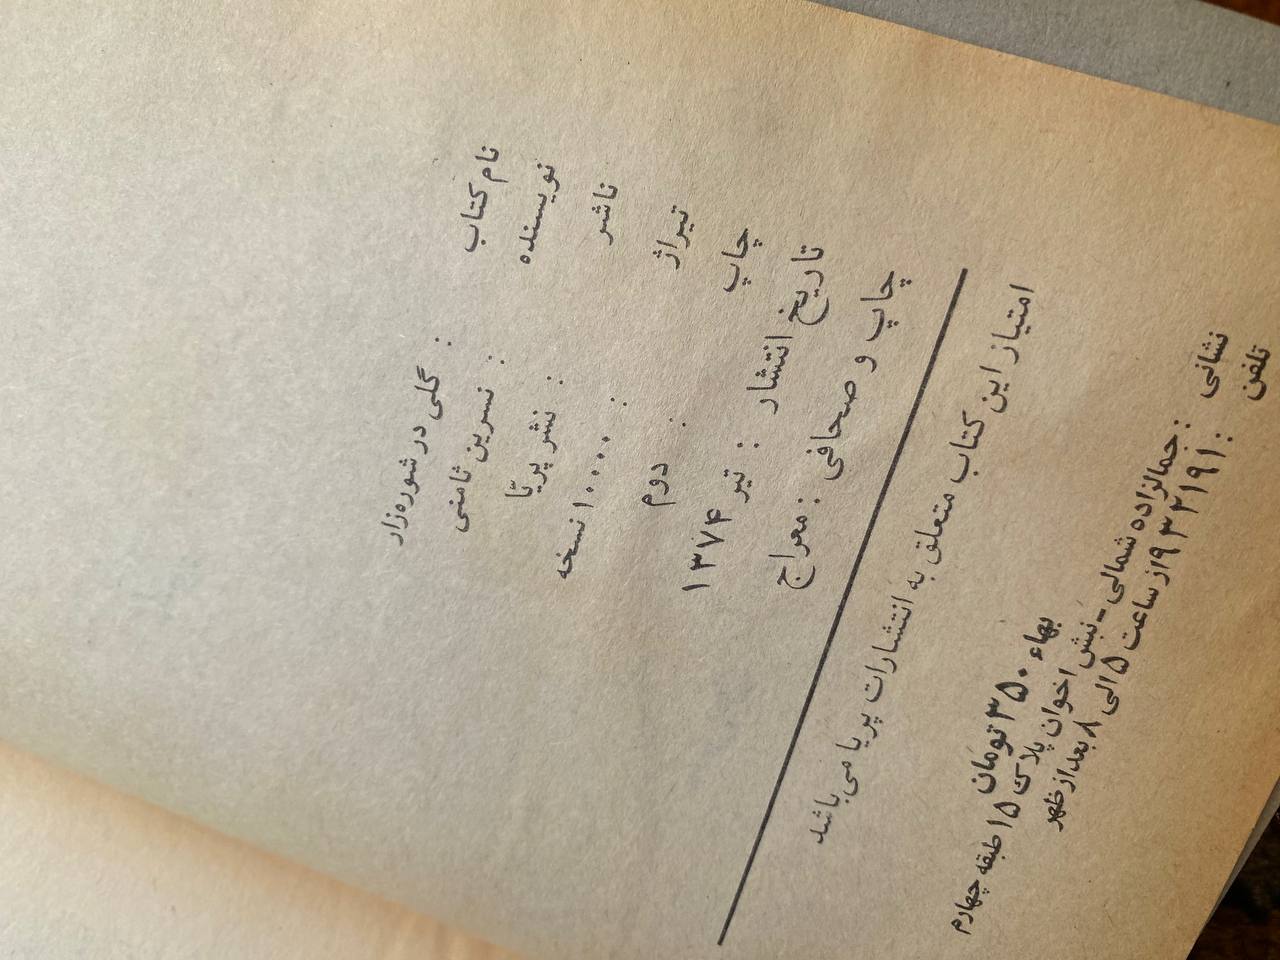 نام کتاب : گلی در شوره‌زار
نویسنده : نسرین ثامنی
ناشر : نشر پریّا
تیراژ : ۱۰۰۰۰ نسخه
چاپ : دوم
تاریخ انتشار : تیر ۱۳۷۴
چاپ و صحافی : معراج
امتیاز این کتاب متعلق به انتشارات پریا می‌باشد
بهاء ۳۵۰ تومان
نشانی : جمالزاده شمالی - نبش اخوان پلاک ۱۵ طبقه چهارم
تلفن : ۹۳۲۱۹۱ از ساعت ۵ الی ۸ بعد از ظهر